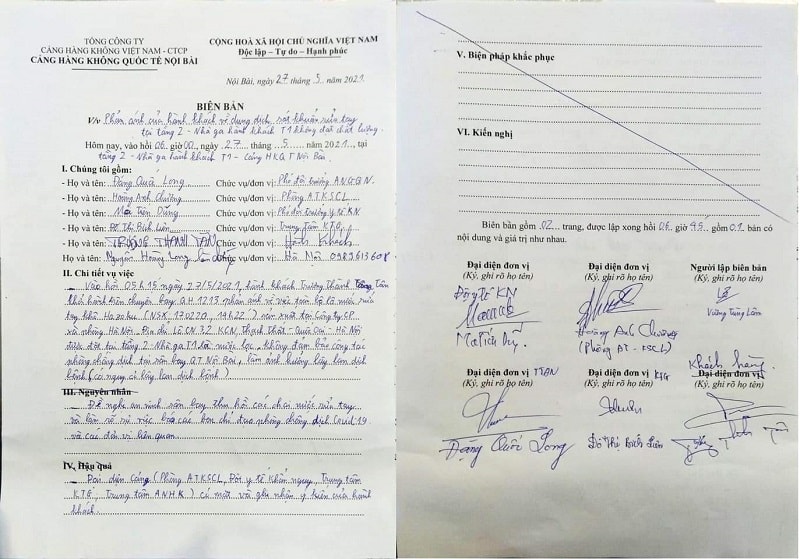 TỔNG CÔNG TY
CẢNG HÀNG KHÔNG VIỆT NAM - CTCP
CẢNG HÀNG KHÔNG QUỐC TẾ NỘI BÀI
CỘNG HOÀ XÃ HỘI CHỦ NGHĨA VIỆT NAM
Độc lập – Tự do – Hạnh phúc
Nội Bài, ngày 27 tháng 5 năm 2021
BIÊN BẢN
V/v Phản ánh của hành khách về dung dịch sát khuẩn rửa tay
tại tầng 2 - Nhà ga hành khách T1 không đạt chất lượng.
Hôm nay, vào hồi 06 giờ 00, ngày 27 tháng 5 năm 2021, tại
tầng 2 - Nhà ga hành khách T1 - Cảng HKQT Nội Bài.
I. Chúng tôi gồm:
- Họ và tên: Đặng Quốc Long Chức vụ/đơn vị: Phó đội trưởng
- Họ và tên: Hoàng Anh Chường Chức vụ/đơn vị: Phòng ATKSCL
- Họ và tên: Mã Tiến Dũng Chức vụ/đơn vị: Phó đội trưởng y tế KN
- Họ và tên: Đỗ Thị Bích Liên Chức vụ/đơn vị: Trung tâm KTG
- Họ và tên: TRƯƠNG THANH TÂN Chức vụ/đơn vị: Hành khách
Họ và tên: Nguyễn Hoàng Long Chức vụ/đơn vị: Hà Nội 0989613608
II. Chi tiết vụ việc
Vào hồi 05h15 ngày 27/5/2021, hành khách Trương Thanh Tân
khởi hành trên chuyến bay QH 1213 phản ánh về việc toàn bộ lô nước rửa
tay khô (NSX: 170220, ) sản xuất tại Công ty CP
văn phòng Hà Nội. Địa chỉ Lô CN 3.2 KCN, Thạch Thất - Quốc Oai - Hà Nội
được đặt tại tầng 2 - Nhà ga T1 là nước lọc, không đảm bảo công tác
phòng chống dịch tại sân bay QT Nội Bài, làm ảnh hưởng lây lan dịch
bệnh (có nguy cơ lây lan dịch bệnh)
III. Nguyên nhân
Đề nghị an ninh sân bay thu hồi các chai nước rửa tay
và làm rõ sự việc báo cáo ban chỉ đạo phòng chống dịch Covid 19
và các đơn vị liên quan.
IV. Hậu quả
Đại diện Cảng (Phòng ATKSCL, Đội y tế khẩn nguy, Trung tâm
KTG, Trung tâm ANHK) có mặt và ghi nhận ý kiến của hành
khách.
V. Biện pháp khắc phục
VI. Kiến nghị
Biên bản gồm 02 trang, được lập xong hồi 06 giờ 45, gồm 01 bản có
nội dung và giá trị như nhau.
Đại diện đơn vị
(Ký, ghi rõ họ tên)
Đội y tế KN
Mã Tiến Dũng
Đại diện đơn vị
(Ký, ghi rõ họ tên)
Hoàng Anh Chường
(Phòng AT - KSCL)
Người lập biên bản
(Ký, ghi rõ họ tên)
Vương Tùng Lâm
Đại diện đơn vị
(Ký, ghi rõ họ tên)
Đặng Quốc Long
Đại diện đơn vị KTG
(Ký, ghi rõ họ tên)
Đỗ Thị Bích Liên
Khách hàng
Đại diện đơn vị
(Ký, ghi rõ họ tên)